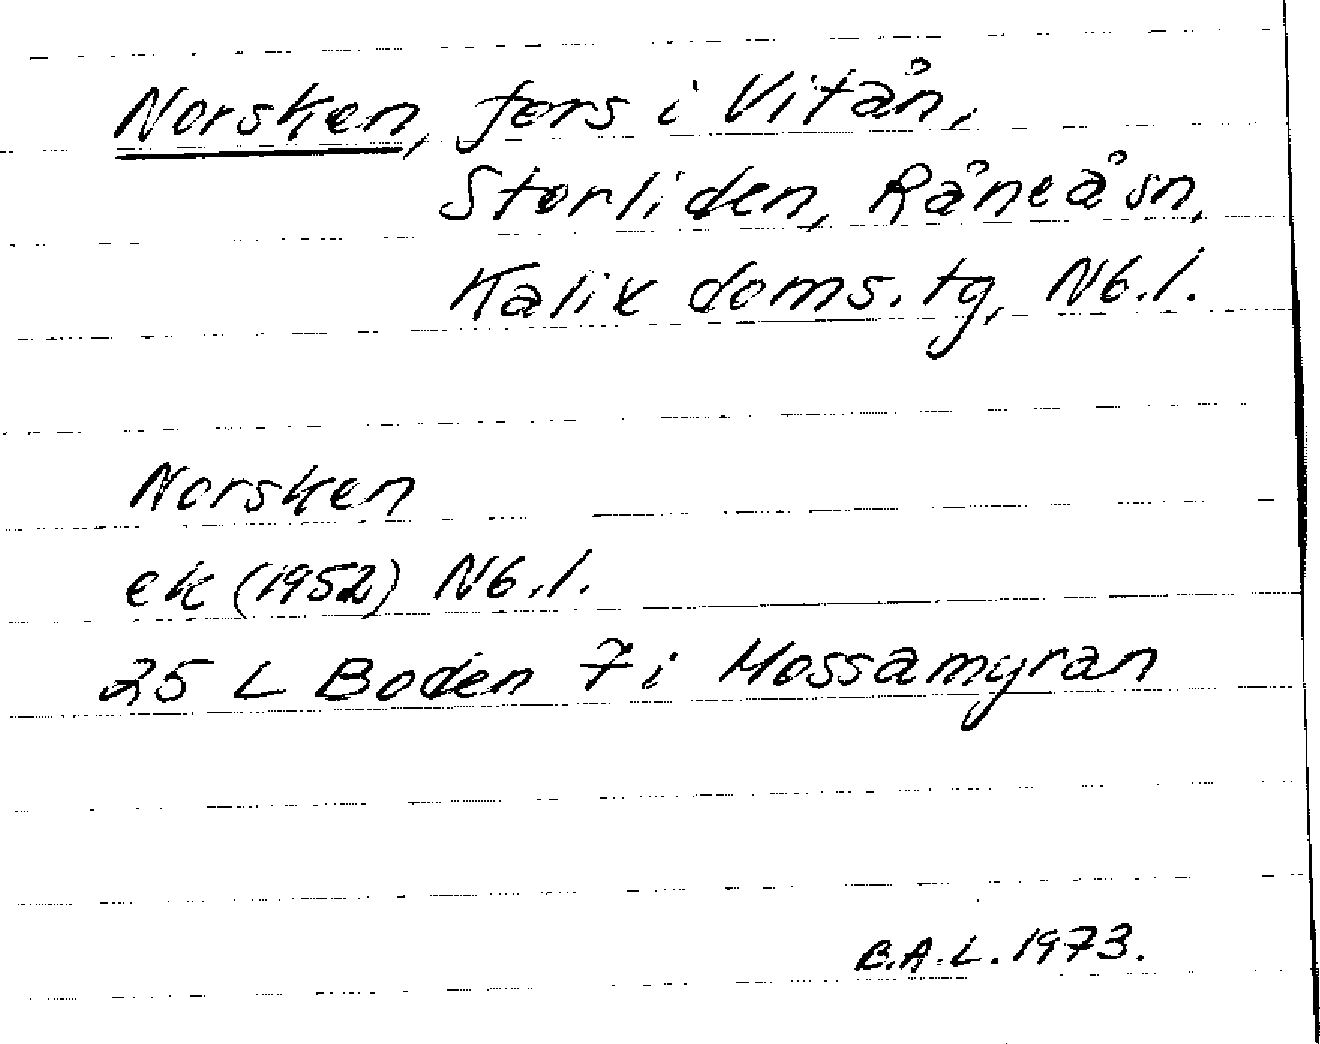 Norsken, fors i Vitån,
Storliden, Råneå sn,
Kalix doms. tg, Nb.l.
Norsken
ek (1952) Nb.l.
25 L Boden 7 i Mossamyran
B.A.L. 1973.